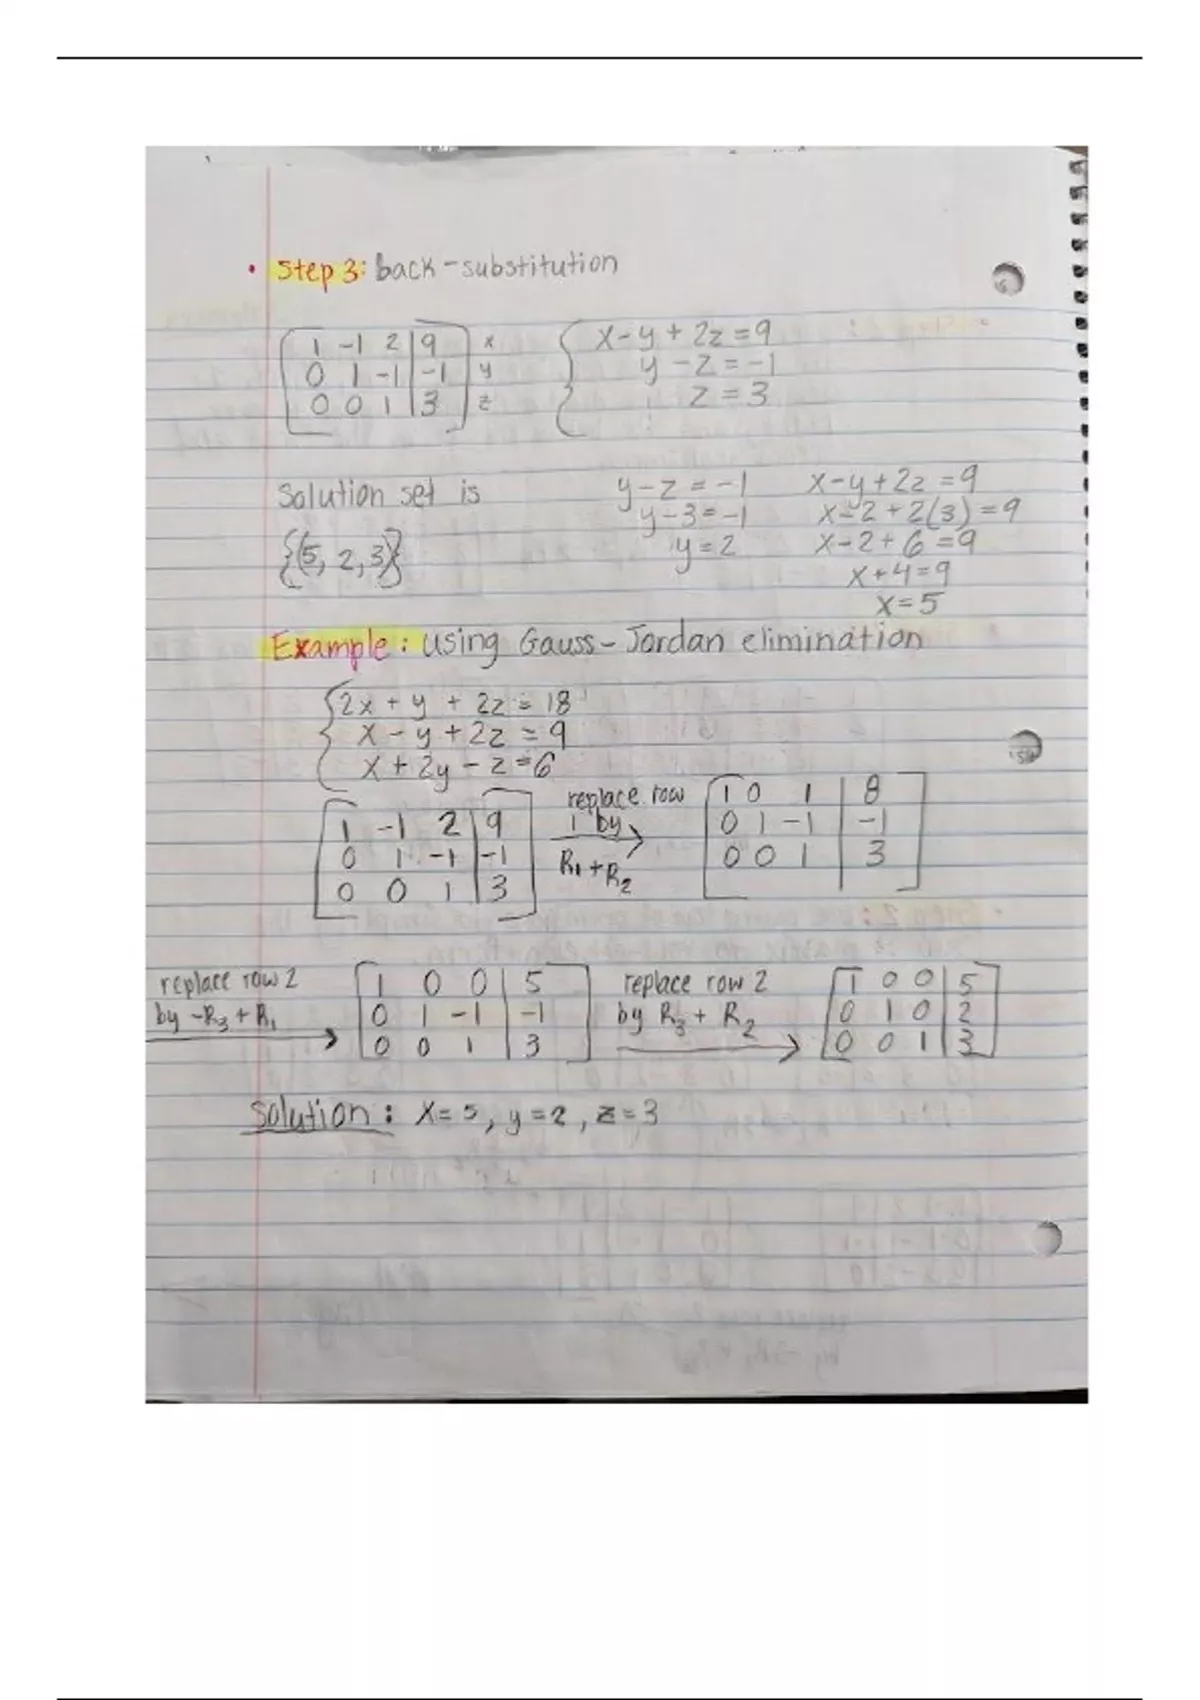 • Step 3: back-substitution
1 -1 2 | 9 x
0 1 -1 | -1 y
0 0 1 | 3 z
x-y+2z=9
y-z=-1
z=3
Solution set is
{(5, 2, 3)}
y-z=-1
y-3=-1
y=2
x-y+2z=9
x-2+2(3)=9
x-2+6=9
x+4=9
x=5
Example: using Gauss-Jordan elimination
2x+y+2z=18
x-y+2z=9
x+2y-z=6
1 -1 2 | 9
0 1 -1 | -1
0 0 1 | 3
replace row
1 by
R₁+R₂
1 0 1 | 8
0 1 -1 | -1
0 0 1 | 3
replace row 2
by -R₃+R₁
1 0 0 | 5
0 1 -1 | -1
0 0 1 | 3
replace row 2
by R₃+R₂
1 0 0 | 5
0 1 0 | 2
0 0 1 | 3
Solution: x=5, y=2, z=3